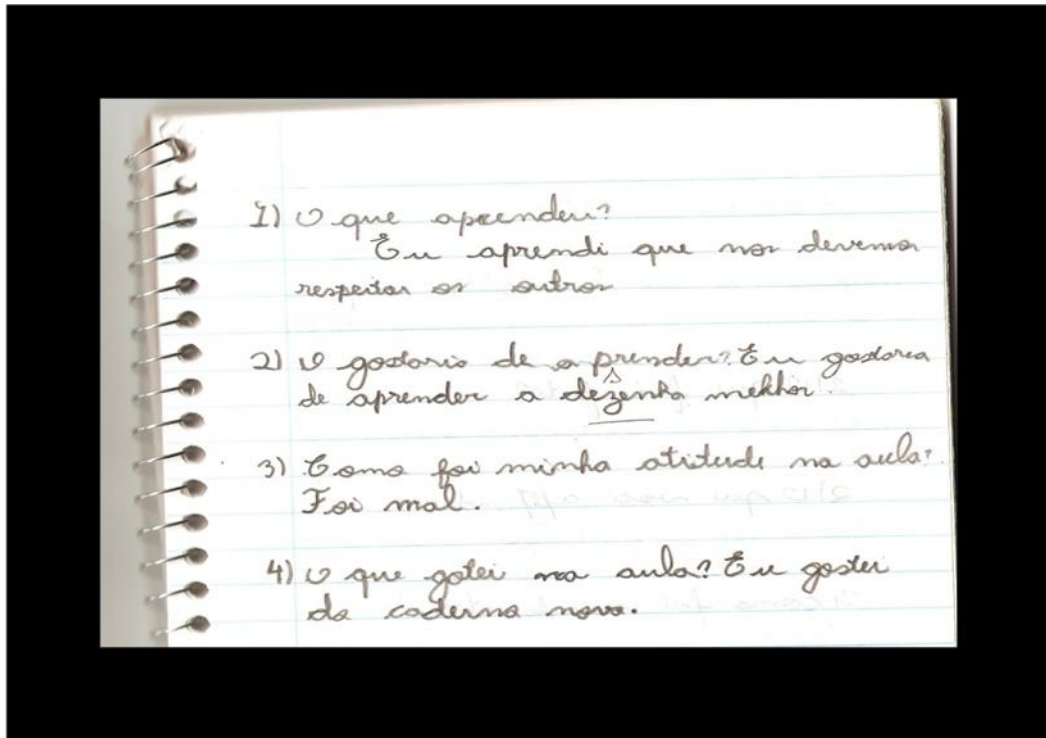 1) O que aprendeu?
Eu aprendi que nos devemos
respeitar os outros
2) O gostario de aprender? Eu gostaria
de aprender a dezenha melhor.
s
3) Como foi minha atitude na aula?
Foi mal.
4) O que gotei na aula? Eu gostei
do caderno novo.